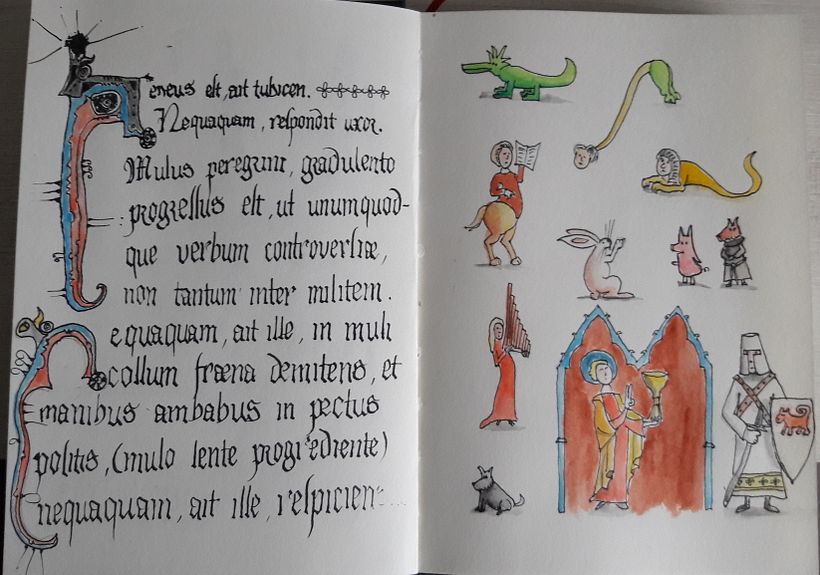 Aeneus est, ait tubicen.
Nequaquam, respondit uxor.
Mulus peregrini, gradulento
progressus est, ut unumquod-
que verbum controversiæ,
non tantum inter militem.
Nequaquam, ait ille, in muli
collum fræna demitens, et
manibus ambabus in pectus
positis, (mulo lente progrediente)
nequaquam, ait ille, respicien...